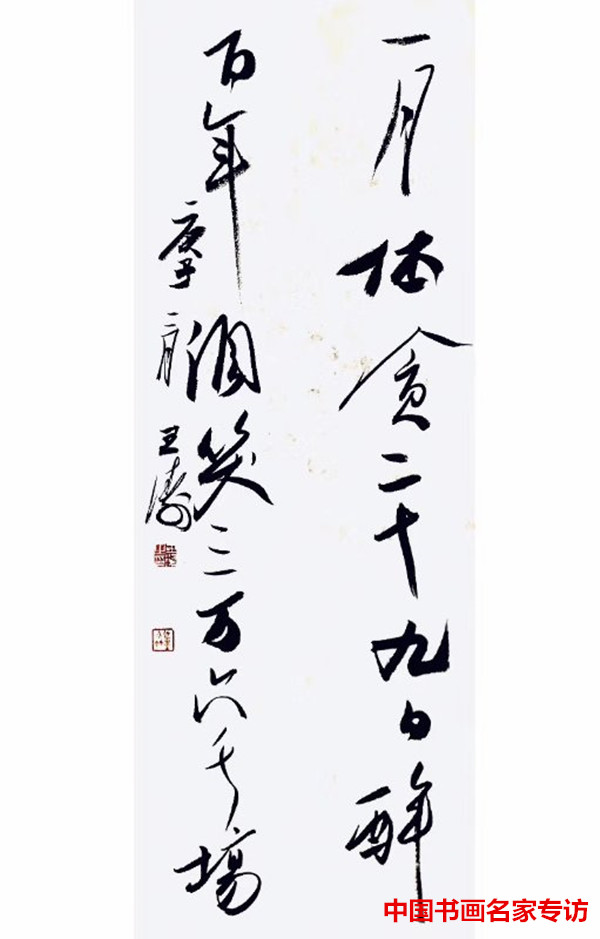 一月休贪二十九日醉
百年湏笑三万六千場
庚子
王濤
中国书画名家专访